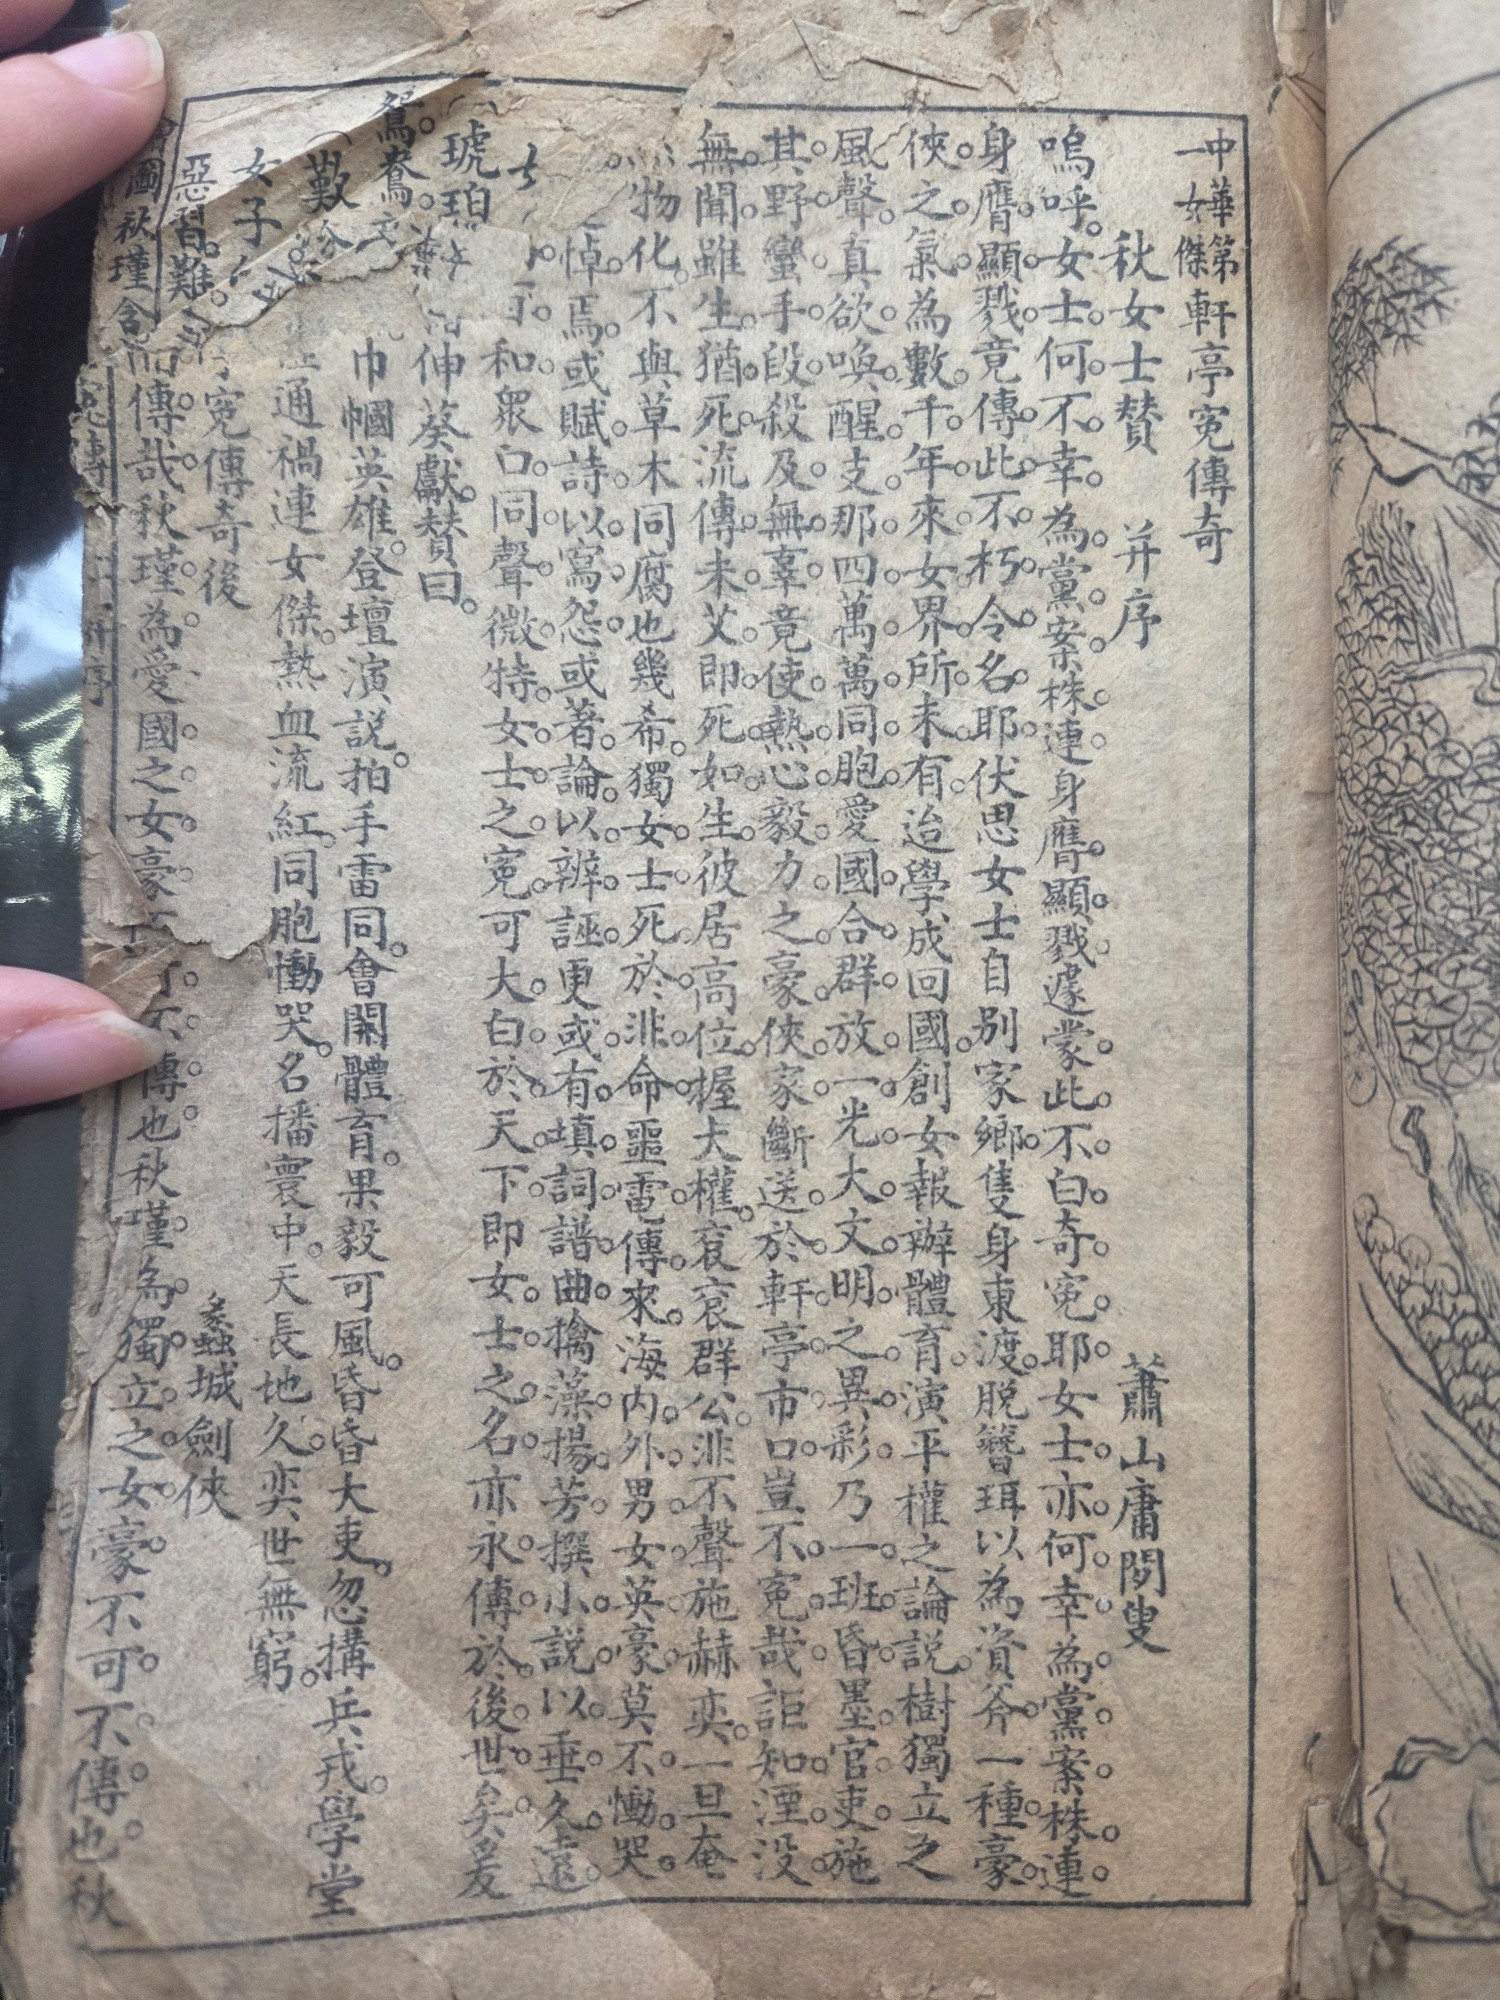 中華第一女傑軒亭冤傳奇
秋女士賛 并序
蕭山庸閒叟
嗚呼。女士何不幸為黨案株連身膺顯戮遽蒙此不白奇冤耶女士亦何幸為黨案株連
身膺顯戮竟傳此不朽令名耶伏思女士自别家鄉隻身東渡脱簪珥以為資斧一種豪
俠之氣為數千年來女界所未有迨學成回國創女報辦體育演平權之論説樹獨立之
風聲真欲喚醒支那四萬萬同胞愛國合群放一光大文明之異彩乃一班昏墨官吏施
其野蠻手段殺及無辜竟使熱心毅力之豪俠家斷送於軒亭市口豈不冤哉詎知湮没
無聞雖生猶死流傳未艾即死如生彼居高位握大權衮衮群公非不聲施赫奕一旦奄
物化不與草木同腐也幾希獨女士死於非命噩電傳來海内外男女英豪莫不慟哭
悼焉或賦詩以寫怨或著論以辨誣更或有填詞譜曲擒藻揚芳撰小説以垂久遠
和衆口同聲微特女士之冤可大白於天下即女士之名亦永傳於後世矣爰
伸葵獻賛曰。
巾幗英雄。登壇演説。拍手雷同。會開體育。果毅可風。昏昏大吏。忽搆兵戎。學堂
通禍連女傑。熱血流紅。同胞慟哭。名播寰中。天長地久。奕世無窮。
冤傳奇後
蠡城劍俠
傳哉秋瑾為愛國之女豪
不傳也秋瑾為獨立之女豪不可不傳也秋
琥珀
鴛鴦
歎
女子
惡習。難
圖秋瑾含冤傳